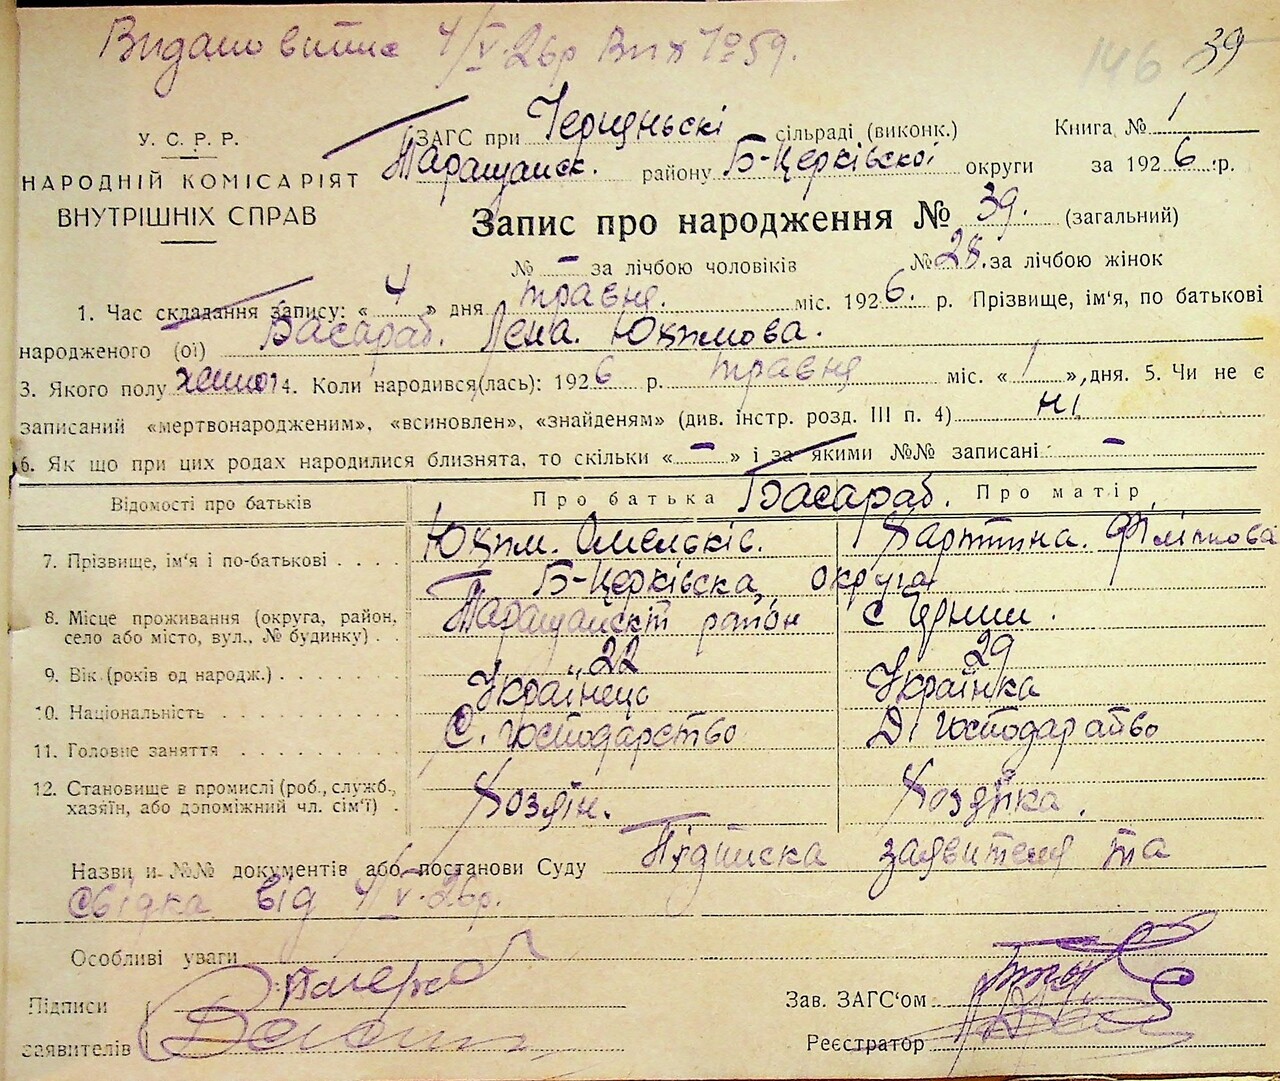 Видано витис 4/V-26р Вих № 59.
146 39
У. С. Р. Р.
НАРОДНІЙ КОМІСАРІЯТ
ВНУТРІШНІХ СПРАВ
ЗАГС при сільраді (виконк.) Книга № 1
Таращанск. району Б-Церківської округи за 1926 р.
Запис про народження № 39. (загальний)
№ – за лічбою чоловіків № 28. за лічбою жінок
1. Час складання запису: « 4 » дня травня. міс. 1926. р. Прізвище, ім'я, по батькові
народженого (ої) Басараб. Лена. Юхимова.
3. Якого полу жіноч 4. Коли народився(лась): 1926 р. травня міс. « 1 », дня. 5. Чи не є
записаний «мертвонародженим», «всиновлен», «знайденям» (див. інстр. розд. III п. 4) ні
6. Як що при цих родах народилися близнята, то скільки « – » і за якими №№ записані –
Відомости про батьків Про батька Басараб. Про матір
7. Прізвище, ім'я і по-батькові Юхим. Омельків. Харитина. Філіпова
Б-Церківска, округа
8. Місце проживання (округа, район, село або місто, вул., № будинку) Таращанскі район с
9. Вік (років од народж.) 22 29
10. Національність Українець Українка
11. Головне заняття С. господарство Д. господарство
12. Становище в промислі (роб., служб., хазяїн, або допоміжний чл. сім'ї) Хозяїн. Хозяйка.
Назви и №№ документів або постанови Суду Підписка заявителя та
свідка від 4/V-26р.
Особливі уваги
Підписи
заявителів
Зав. ЗАГС'ом
Реєстратор